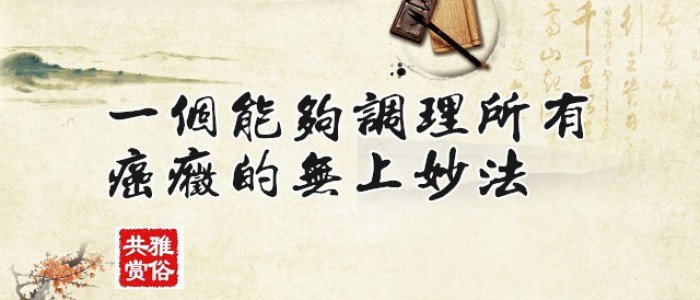 一個能夠調理所有
癌癥的無上妙法
雅俗
共赏